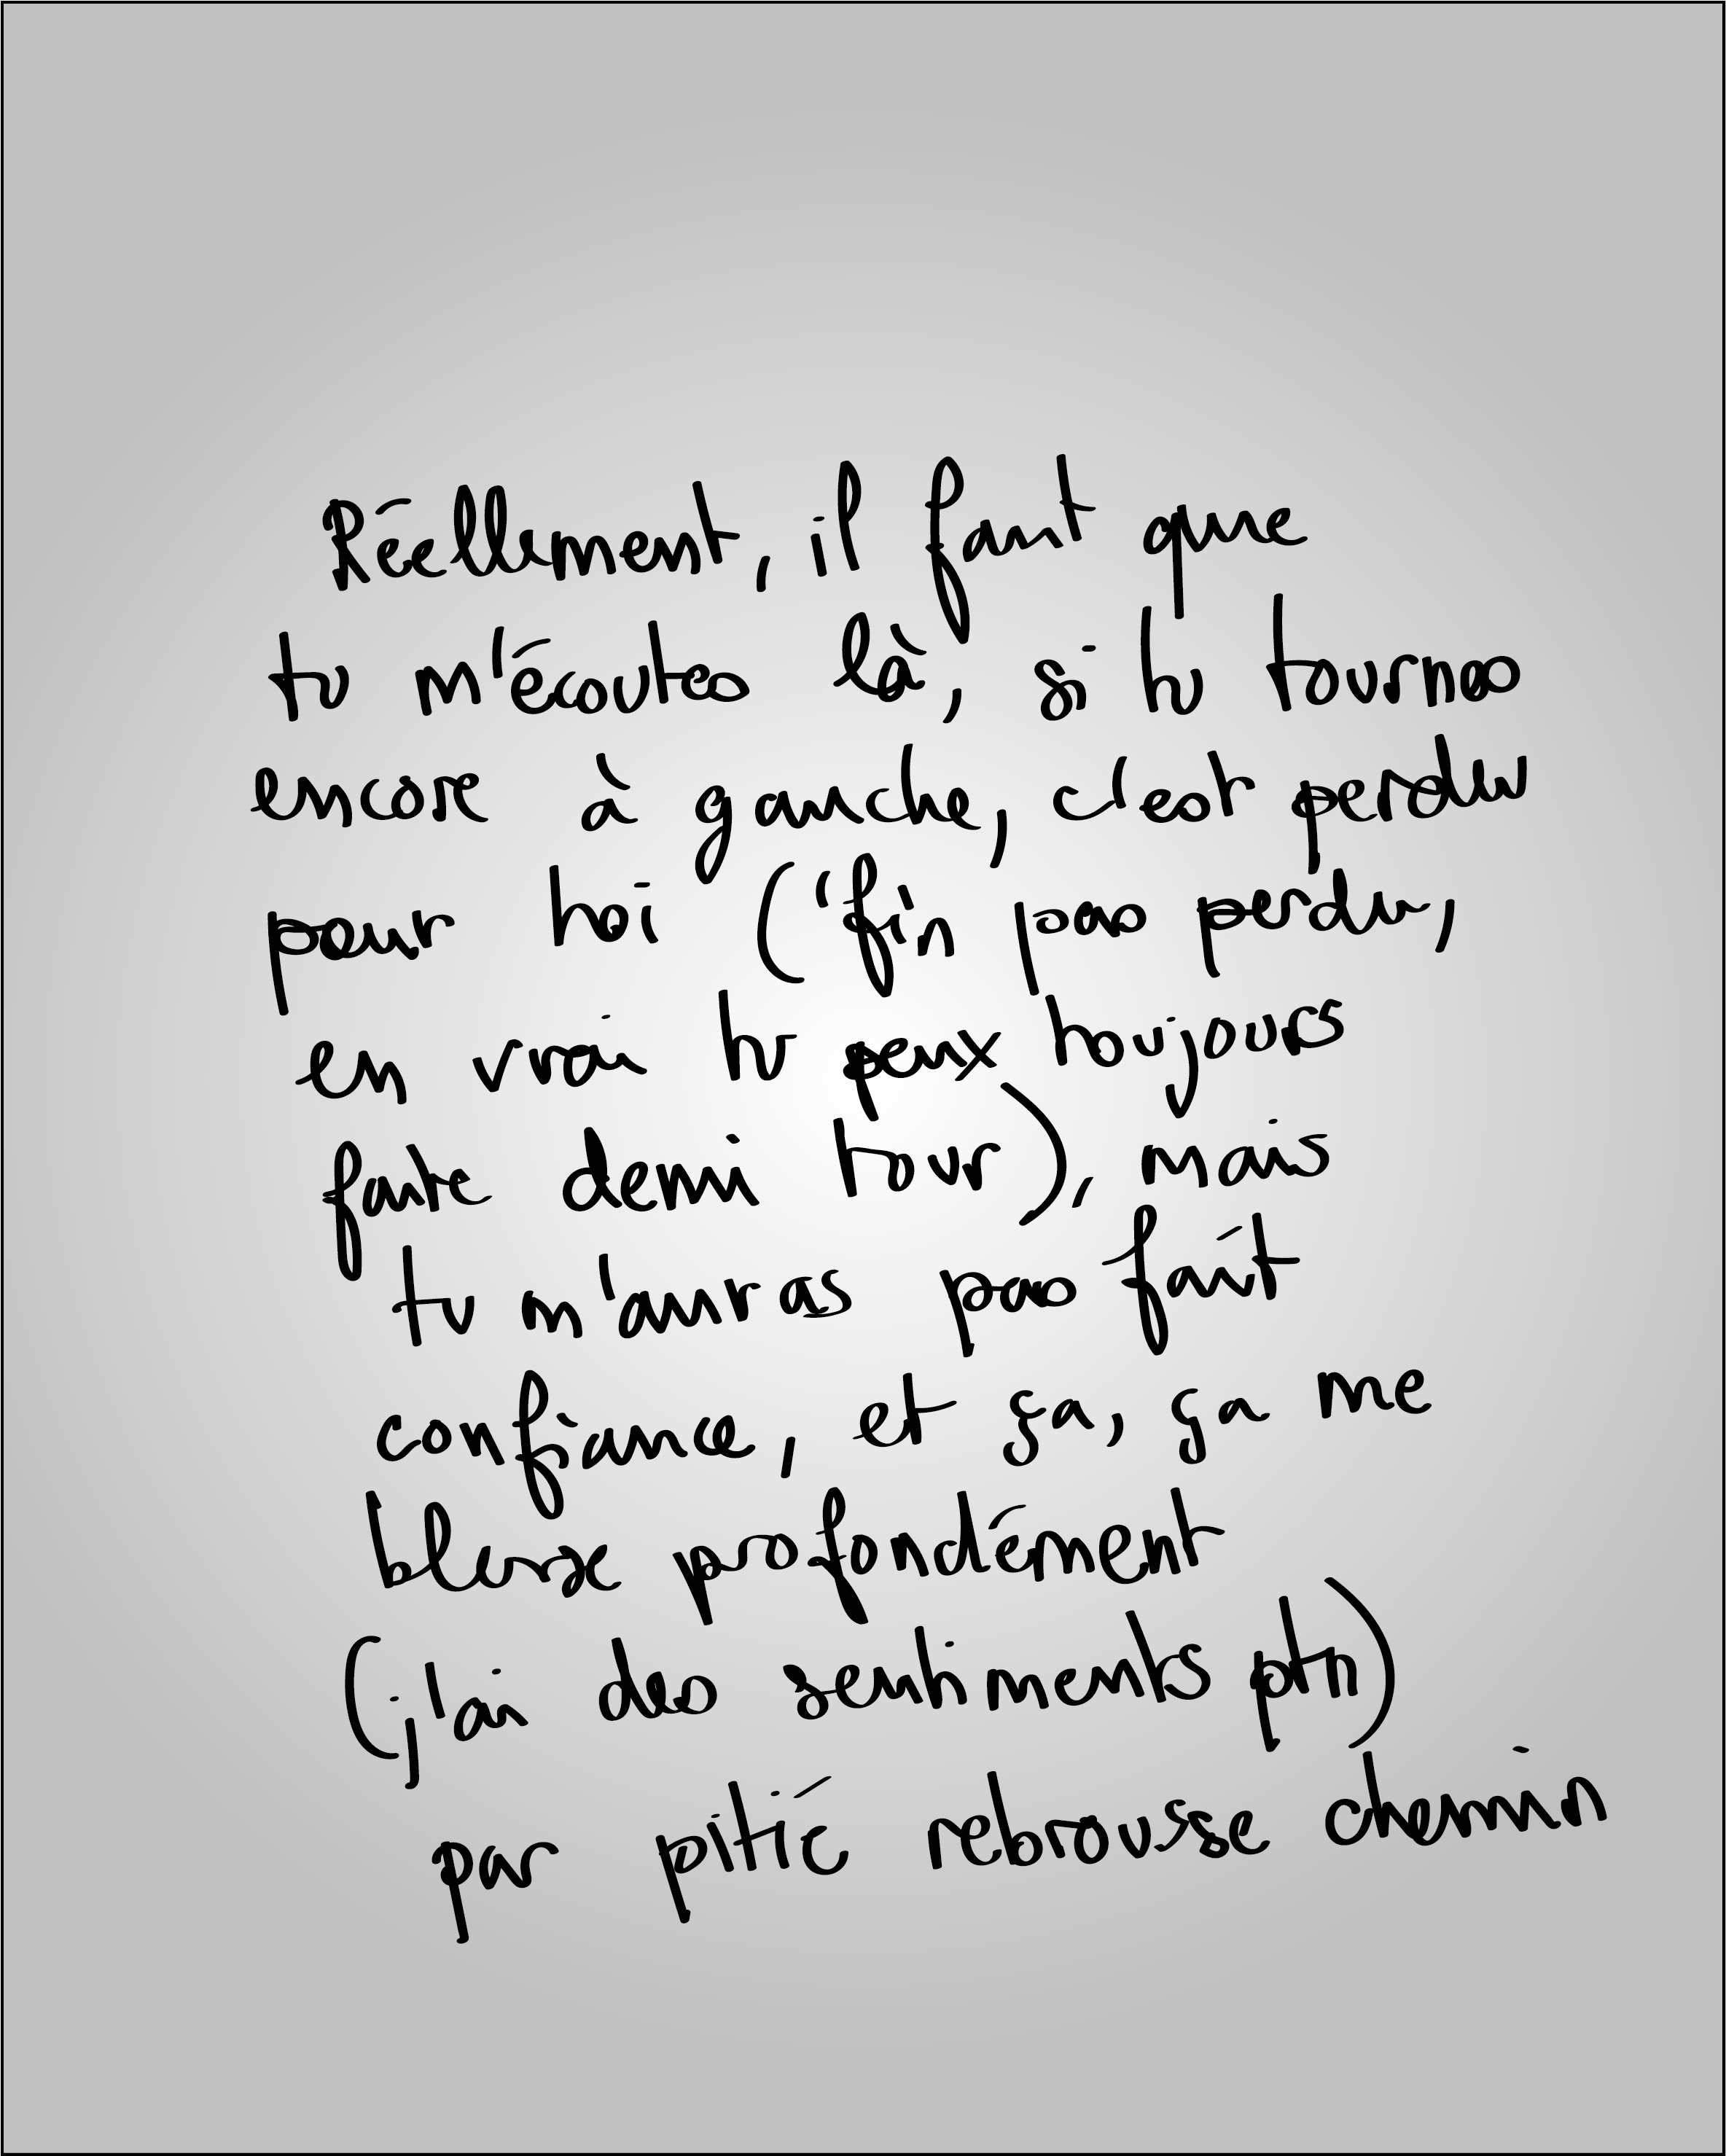 Réellement, il faut que
tu m'écoutes là, si tu tournes
encore à gauche, c'est perdu
pour toi ('fin pas perdu,
en vrai tu peux toujours
faire demi tour), mais
tu m'auras pas fait
confiance, et ça, ça me
blesse profondément
(j'ai des sentiments ptn)
par pitié rebrousse chemin